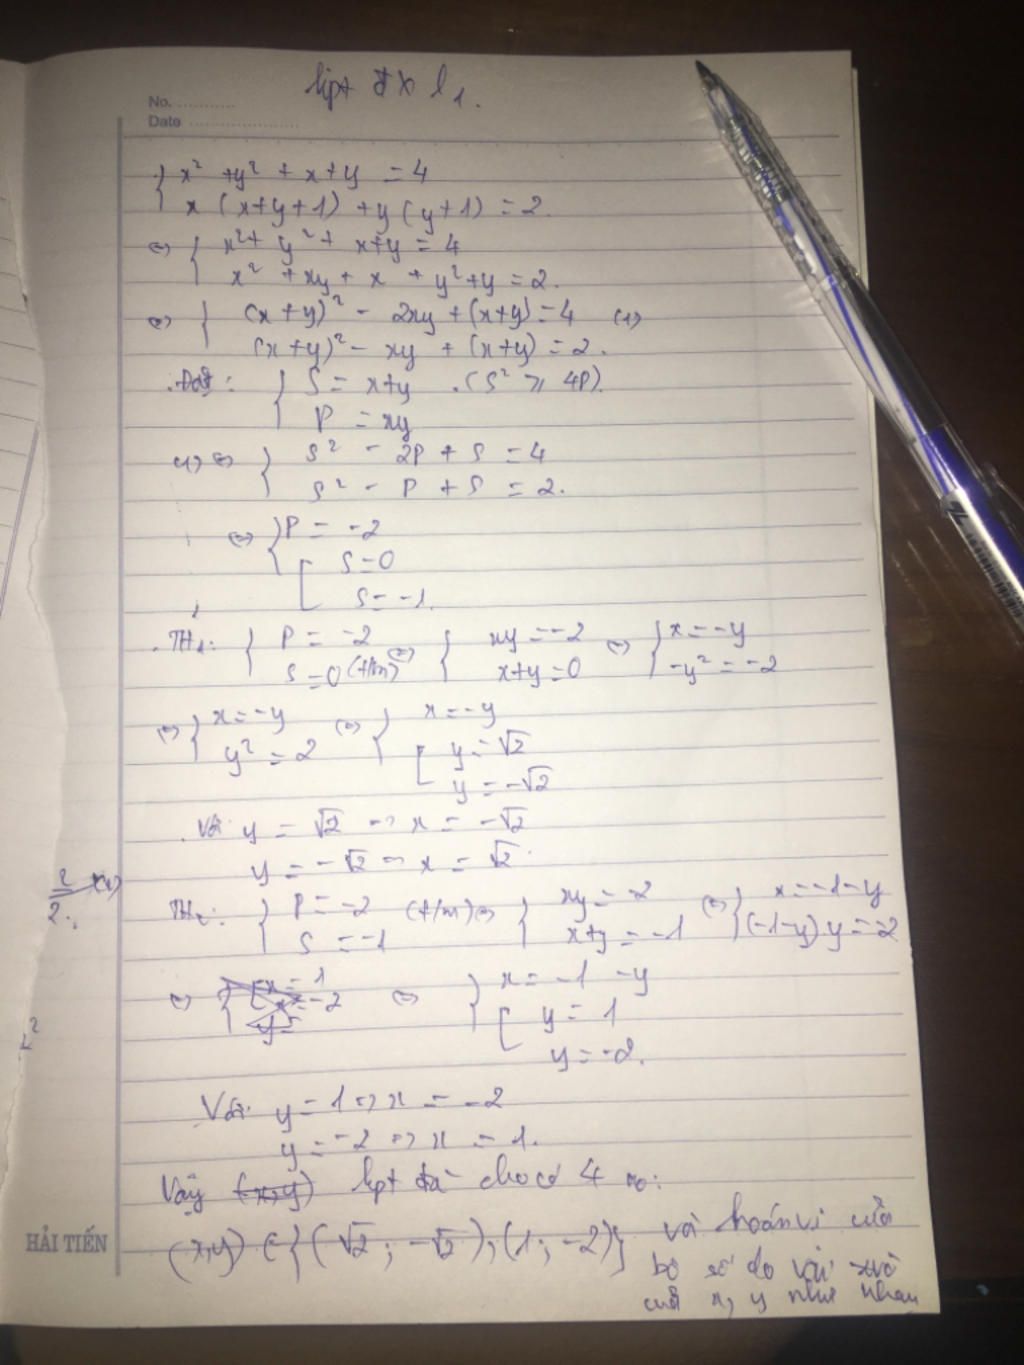 hpt đx l1.
No. ............
Date ........................
{ x² + y² + x + y = 4
x (x+y+1) + y (y+1) = 2.
⇔ { x² + y² + x+y = 4
x² + xy + x + y² + y = 2.
⇔ { (x+y)² - 2xy + (x+y) = 4 (1)
(x+y)² - xy + (x+y) = 2.
Đặt: { S = x+y (S² ≥ 4P).
P = xy
(1) ⇔ { S² - 2P + S = 4
S² - P + S = 2.
⇔ { P = -2
[ S = 0
S = -1.
TH1: { P = -2 ⇔ { xy = -2 ⇔ { x = -y
S = 0 (t/m) x+y = 0 -y² = -2
⇔ { x = -y ⇔ { x = -y
y² = 2 [ y = √2
y = -√2
Với y = √2 ⇒ x = -√2
y = -√2 ⇒ x = √2.
TH2: { P = -2 (t/m) ⇔ { xy = -2 ⇔ { x = -1-y
S = -1 x+y = -1 (-1-y) y = -2
⇔ ⇔ { x = -1 - y
[ y = 1
y = -2.
Với y = 1 ⇒ x = -2
y = -2 ⇒ x = 1.
Vậy (x,y) hpt đã cho có 4 no:
(x,y) ∈ {(√2 ; -√2) ; (1 ; -2)} và hoán vị của
bộ số do vai trò
của x, y như nhau
HẢI TIẾN